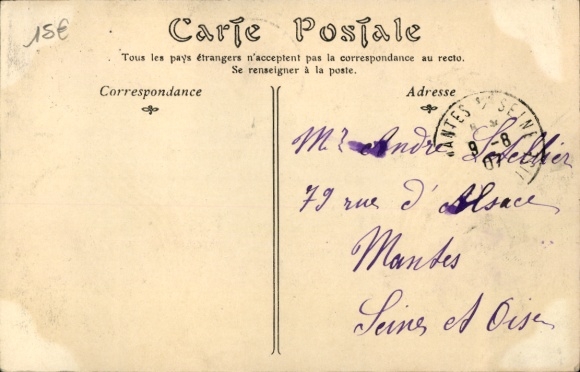 15€
Carte Postale
Tous les pays étrangers n'acceptent pas la correspondance au recto.
Se renseigner à la poste.
Correspondance
Adresse
MANTES S/ SEINE
9 -8
07
Mr André Letellier
79 rue d'Alsace
Mantes
Seine et Oise